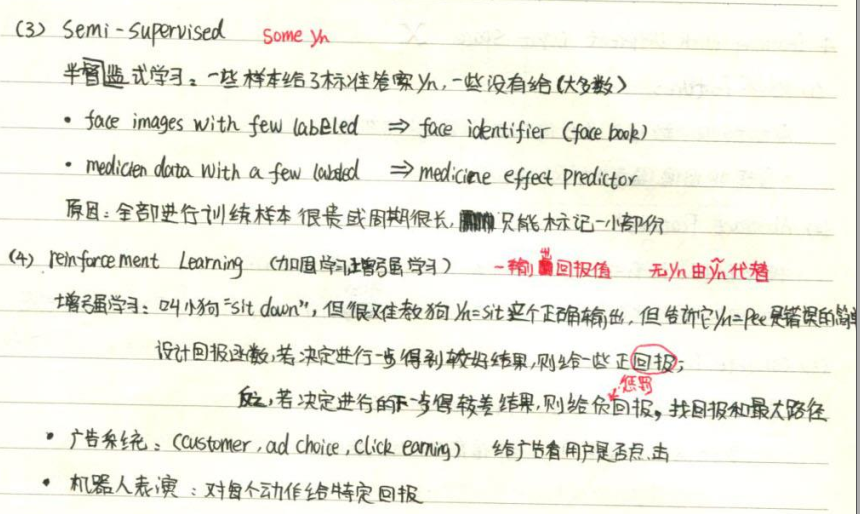 (3) Semi-supervised Some yn
半监督式学习：一些样本给了标准答案yn，一些没有给(大多数)
• face images with few labeled ⇒ face identifier (facebook)
• medicien data with a few labeled ⇒ medicine effect predictor
原因：全部进行训练样本很贵或周期很长，只能标记一小部份
(4) reinforcement Learning （加固学习，增强学习） - 输出回报值 无yn由ỹn代替
增强学习：叫小狗"sit down"，但很难教狗yn=sit这个正确输出，但告诉它yn=pee是错误的简单
设计回报函数，若决定进行一步得到较好结果，则给一些正回报；
惩罚
反之，若决定进行的下一步得较差结果，则给负回报，找回报和最大路径
• 广告系统：(customer, ad choice, click earning) 给广告看用户是否点击
• 机器人表演：对每个动作给特定回报